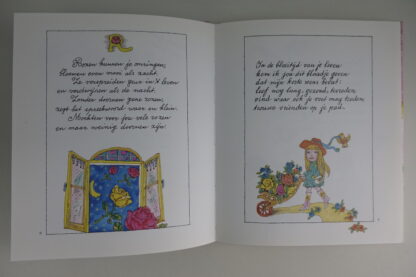 R
Rozen kunnen je omringen,
bloemen even mooi als zacht.
Ze verspreiden geur in 't leven
en verdwijnen als de nacht.
Zonder doornen geen rozen,
zegt het spreekwoord waar en klein.
Mochten voor jou vele rozen
en maar weinig doornen zijn.
In de bloeitijd van je leven
kom ik jou dit blaadje geven
dat mijn beste wens bevat:
leef nog lang, gezond, tevreden
vind waar ook je voet mag treden
trouwe vrienden op je pad.